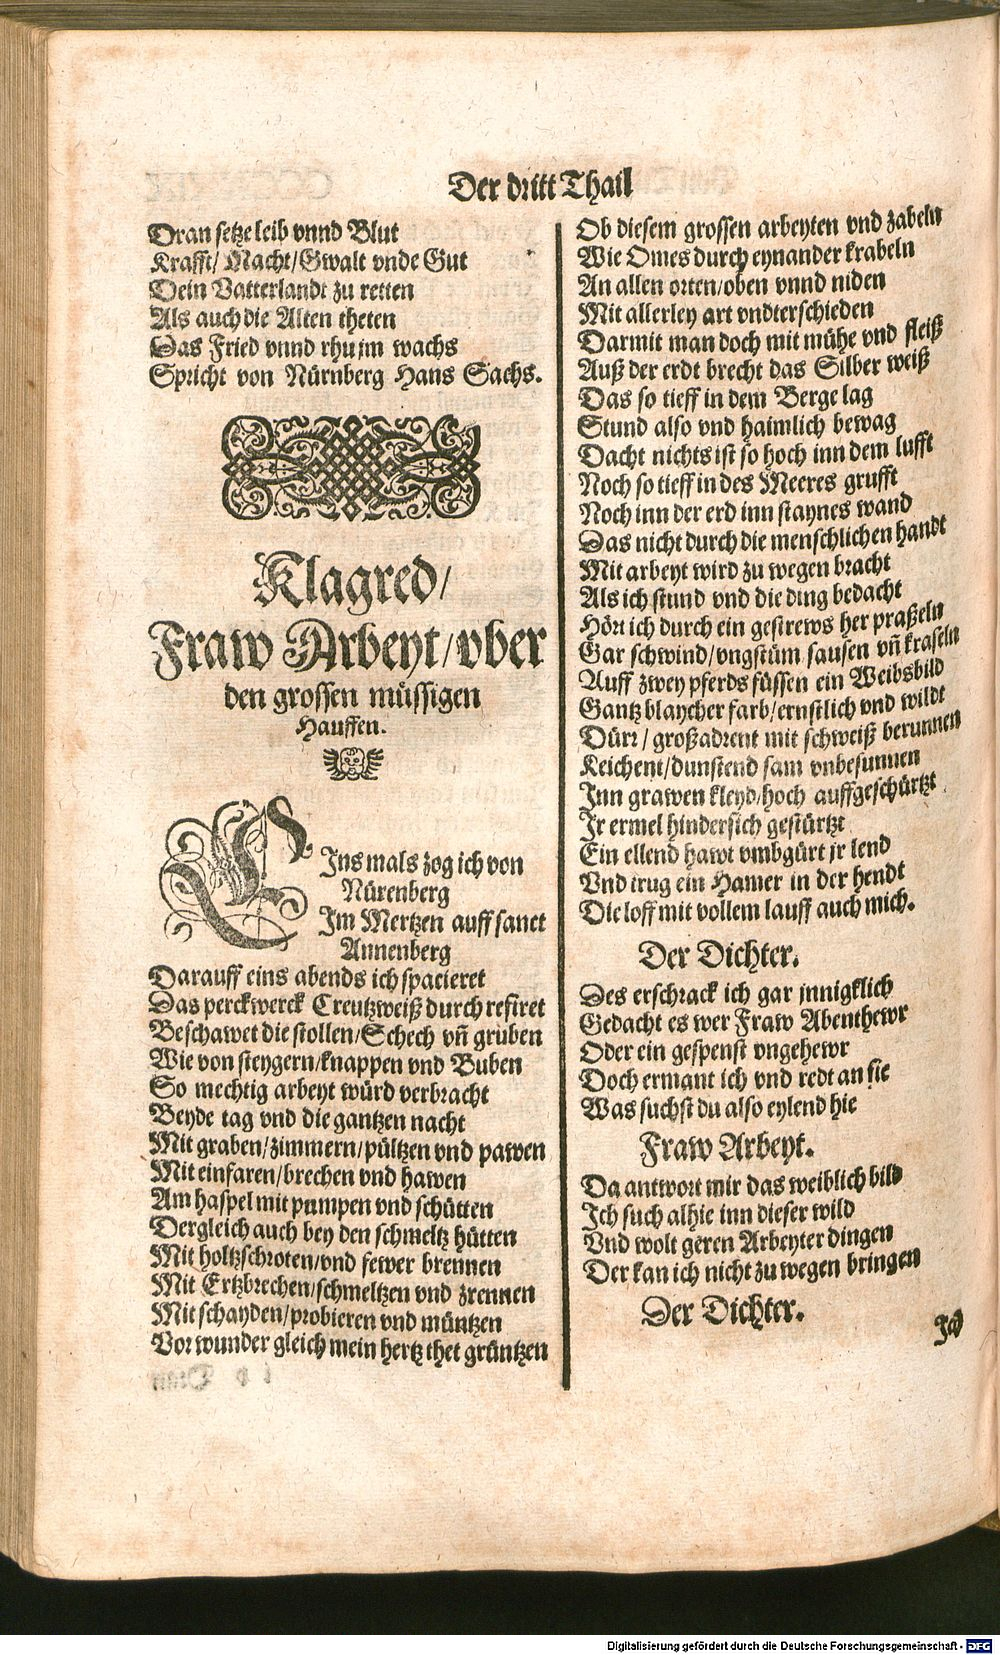 Der dritt Thail
Dran setze leib vnnd Blut
Krafft/ Macht/Gwalt vnde Gut
Dein Vatterlandt zu retten
Als auch die Alten theten
Das Fried vnnd rhu jm wachs
Spricht von Nürnberg Hans Sachs.
Klagred/
Fraw Arbeyt/vber
den grossen müssigen
Hauffen.
EJns mals zog ich von
Nürenberg
Im Mertzen auff sanct
Annenberg
Darauff eins abends ich spacieret
Das perckwerck Creutzweiß durch refiret
Beschawet die stollen/Schech vñ gruben
Wie von steygern/knappen vnd Buben
So mechtig arbeyt würd verbracht
Beyde tag vnd die gantzen nacht
Mit graben/zimmern/pültzen vnd pawen
Mit einfaren/brechen vnd hawen
Am haspel mit pumpen vnd schütten
Dergleich auch bey den schmeltz hütten
Mit holtzschroten/vnd fewer brennen
Mit Ertzbrechen/schmeltzen vnd zrennen
Mit schayden/probieren vnd müntzen
Vor wunder gleich mein hertz thet grüntzen
Ob diesem grossen arbeyten vnd zabeln
Wie Omes durch eynander krabeln
An allen orten/oben vnnd niden
Mit allerley art vndterschieden
Darmit man doch mit mühe vnd fleiß
Auß der erdt brecht das Silber weiß
Das so tieff in dem Berge lag
Stund also vnd haimlich bewag
Dacht nichts ist so hoch inn dem lufft
Noch so tieff in des Meeres grufft
Noch inn der erd inn staynes wand
Das nicht durch die menschlichen handt
Mit arbeyt wird zu wegen bracht
Als ich stund vnd die ding bedacht
Hört ich durch ein gestrews her praßeln
Gar schwind/vngstüm sausen vñ kraseln
Auff zwey pferds füssen ein Weibsbild
Gantz blaycher farb/ernstlich vnd wildt
Dürr/ großadrent mit schweiß berunnen
Keichent/dunstend sam vnbesunnen
Inn grawen kleyd/hoch auffgeschürtzt
Ir ermel hindersich gestürtzt
Ein ellend hawt vmbgürt jr lend
Vnd trug ein Hamer in der hendt
Die loff mit vollem lauff auch mich.
Der Dichter.
Des erschrack ich gar jnnigklich
Gedacht es wer Fraw Abenthewr
Oder ein gespenst vngehewr
Doch ermant ich vnd redt an sie
Was suchst du also eylend hie
Fraw Arbeyt.
Da antwort mir das weiblich bild
Ich such alhie inn dieser wild
Vnd wolt geren Arbeyter dingen
Der kan ich nicht zu wegen bringen
Der Dichter.
Ich
Digitalisierung gefördert durch die Deutsche Forschungsgemeinschaft - DFG